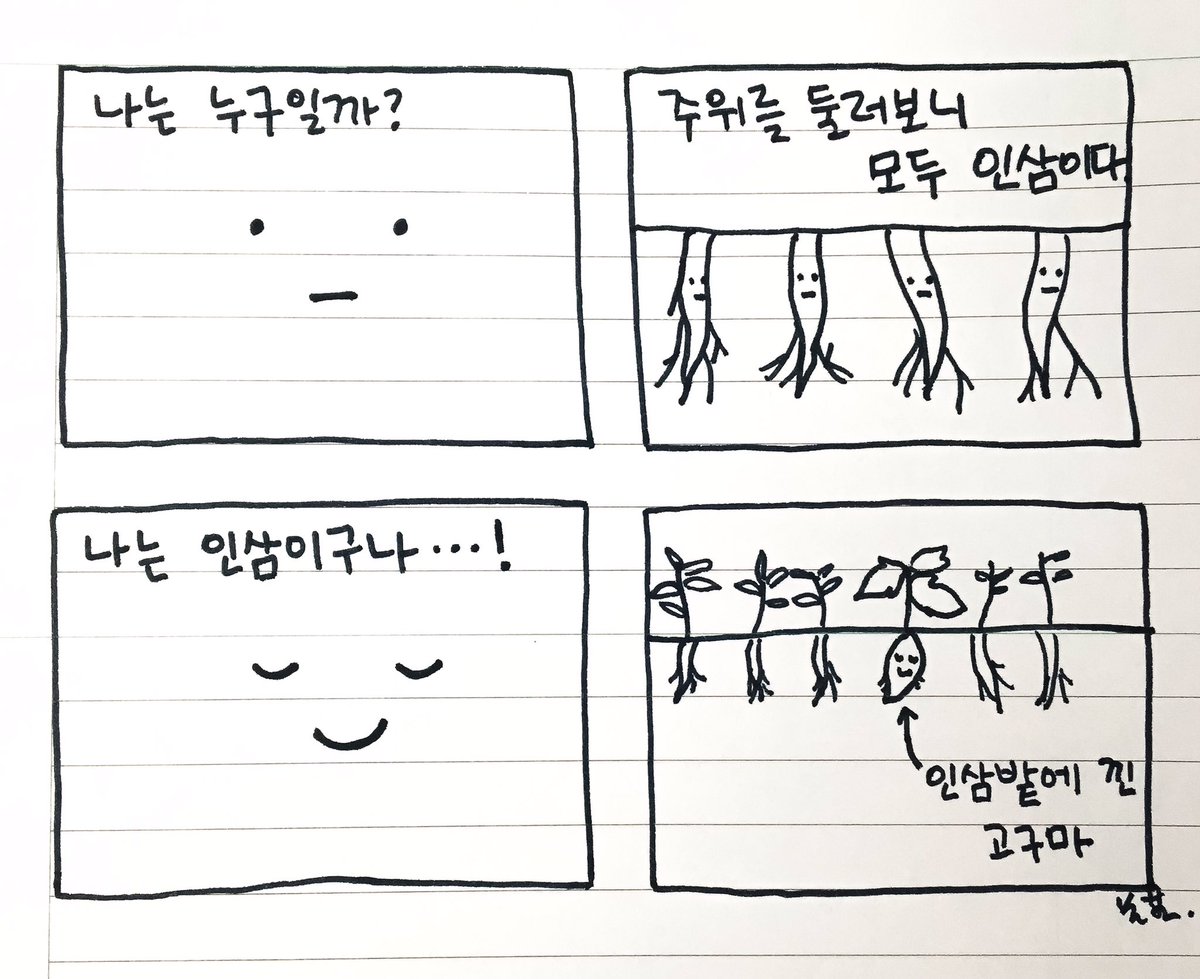 나는 누구일까?
주위를 둘러보니
모두 인삼이다.
나는 인삼이구나...!
인삼밭에 낀
고구마